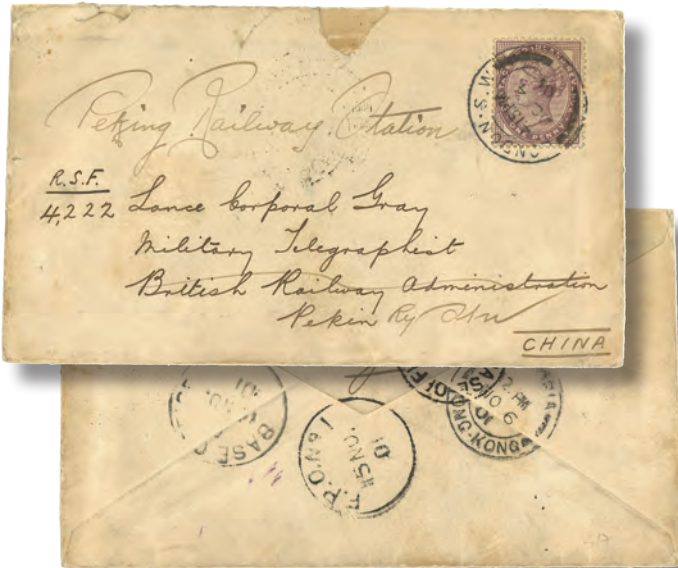 Peking Railway Station
R.S.F.
4,222 Lance Corporal Gray
Military Telegraphist
British Railway Administration
Pekin Ry Stn
CHINA
LONDON. S.W.
PENNY
BASE
01
F.P.O. No 1
15 NO.
01
HONG-KONG
2. PM
6 NO
01